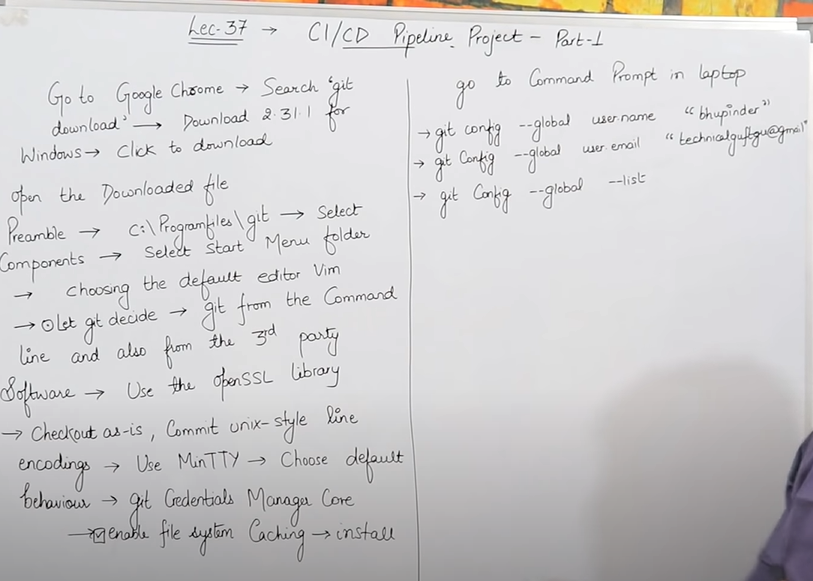 Lec-37 → CI/CD Pipeline Project - Part-1
Go to Google Chrome → Search 'git
download' → Download 2.31.1 for
Windows → Click to download
open the Downloaded file
Preamble → C:\Programfiles\git → Select
Components → Select Start Menu folder
→ Choosing the default editor Vim
→ ⊙Let git decide → git from the Command
line and also from the 3rd party
Software → Use the openSSL library
→ Checkout as-is, Commit unix-style line
encodings → Use MinTTY → Choose default
behaviour → git Credentials Manager Core
→ ☑enable file system Caching → install
go to Command Prompt in laptop
→ git config --global user.name "bhupinder"
→ git Config --global user.email "technicalguftgu@gmail"
→ git Config --global --list